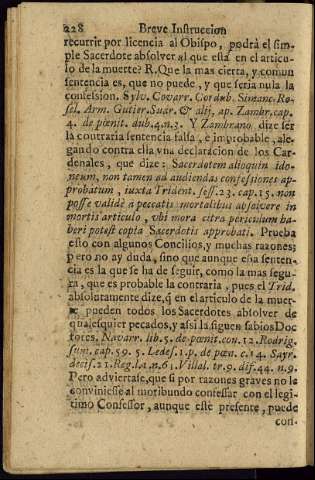 228 Breve Instruccion
recurrir por licencia al Obispo, podrà el sim-
ple Sacerdote absolver al que està en el articu-
lo de la muerte? R. Que la mas cierta, y comun
sentencia es, que no puede, y que seria nula la
confession. Sylv. Covarr. Cordub. Simanc. Ro-
sel. Arm. Gutier. Suar. & alij, ap. Zambr. cap.
4. de pœnit. dub. 4. n. 3. Y Zambrano dize ser
la contraria sentencia falsa, è improbable, ale-
gando contra ella vna declaracion de los Car-
denales, que dize: Sacerdotem alioquin ido-
neum, non tamen ad audiendas confessiones ap-
probatum, iuxta Trident. sess. 23. cap. 15. non
posse validè à peccatis mortalibus absolvere in
mortis articulo, vbi mora citra periculum ha-
beri potest copia Sacerdotis approbati. Prueba
esto con algunos Concilios, y muchas razones;
pero no ay duda, sino que aunque essa senten-
cia es la que se ha de seguir, como la mas segu-
ra, que es probable la contraria, pues el Trid.
absolutamente dize, q̃ en el articulo de la muer-
te pueden todos los Sacerdotes absolver de
qualesquier pecados, y assi la siguen sabios Doc
tores. Navarr. lib. 5. de pœnit. con. 12. Rodrig.
sum. cap. 59. 5. Ledes. 1. p. de pœn. c. 14. Sayr.
decis. 21. Reg. l. 1. n. 61. Villal. tr. 9. dif. 44. n. 9.
Pero adviertase, que si por razones graves no le
conviniesse al moribundo confessar con el legi-
timo Confessor, aunque estè presente, puede
con-